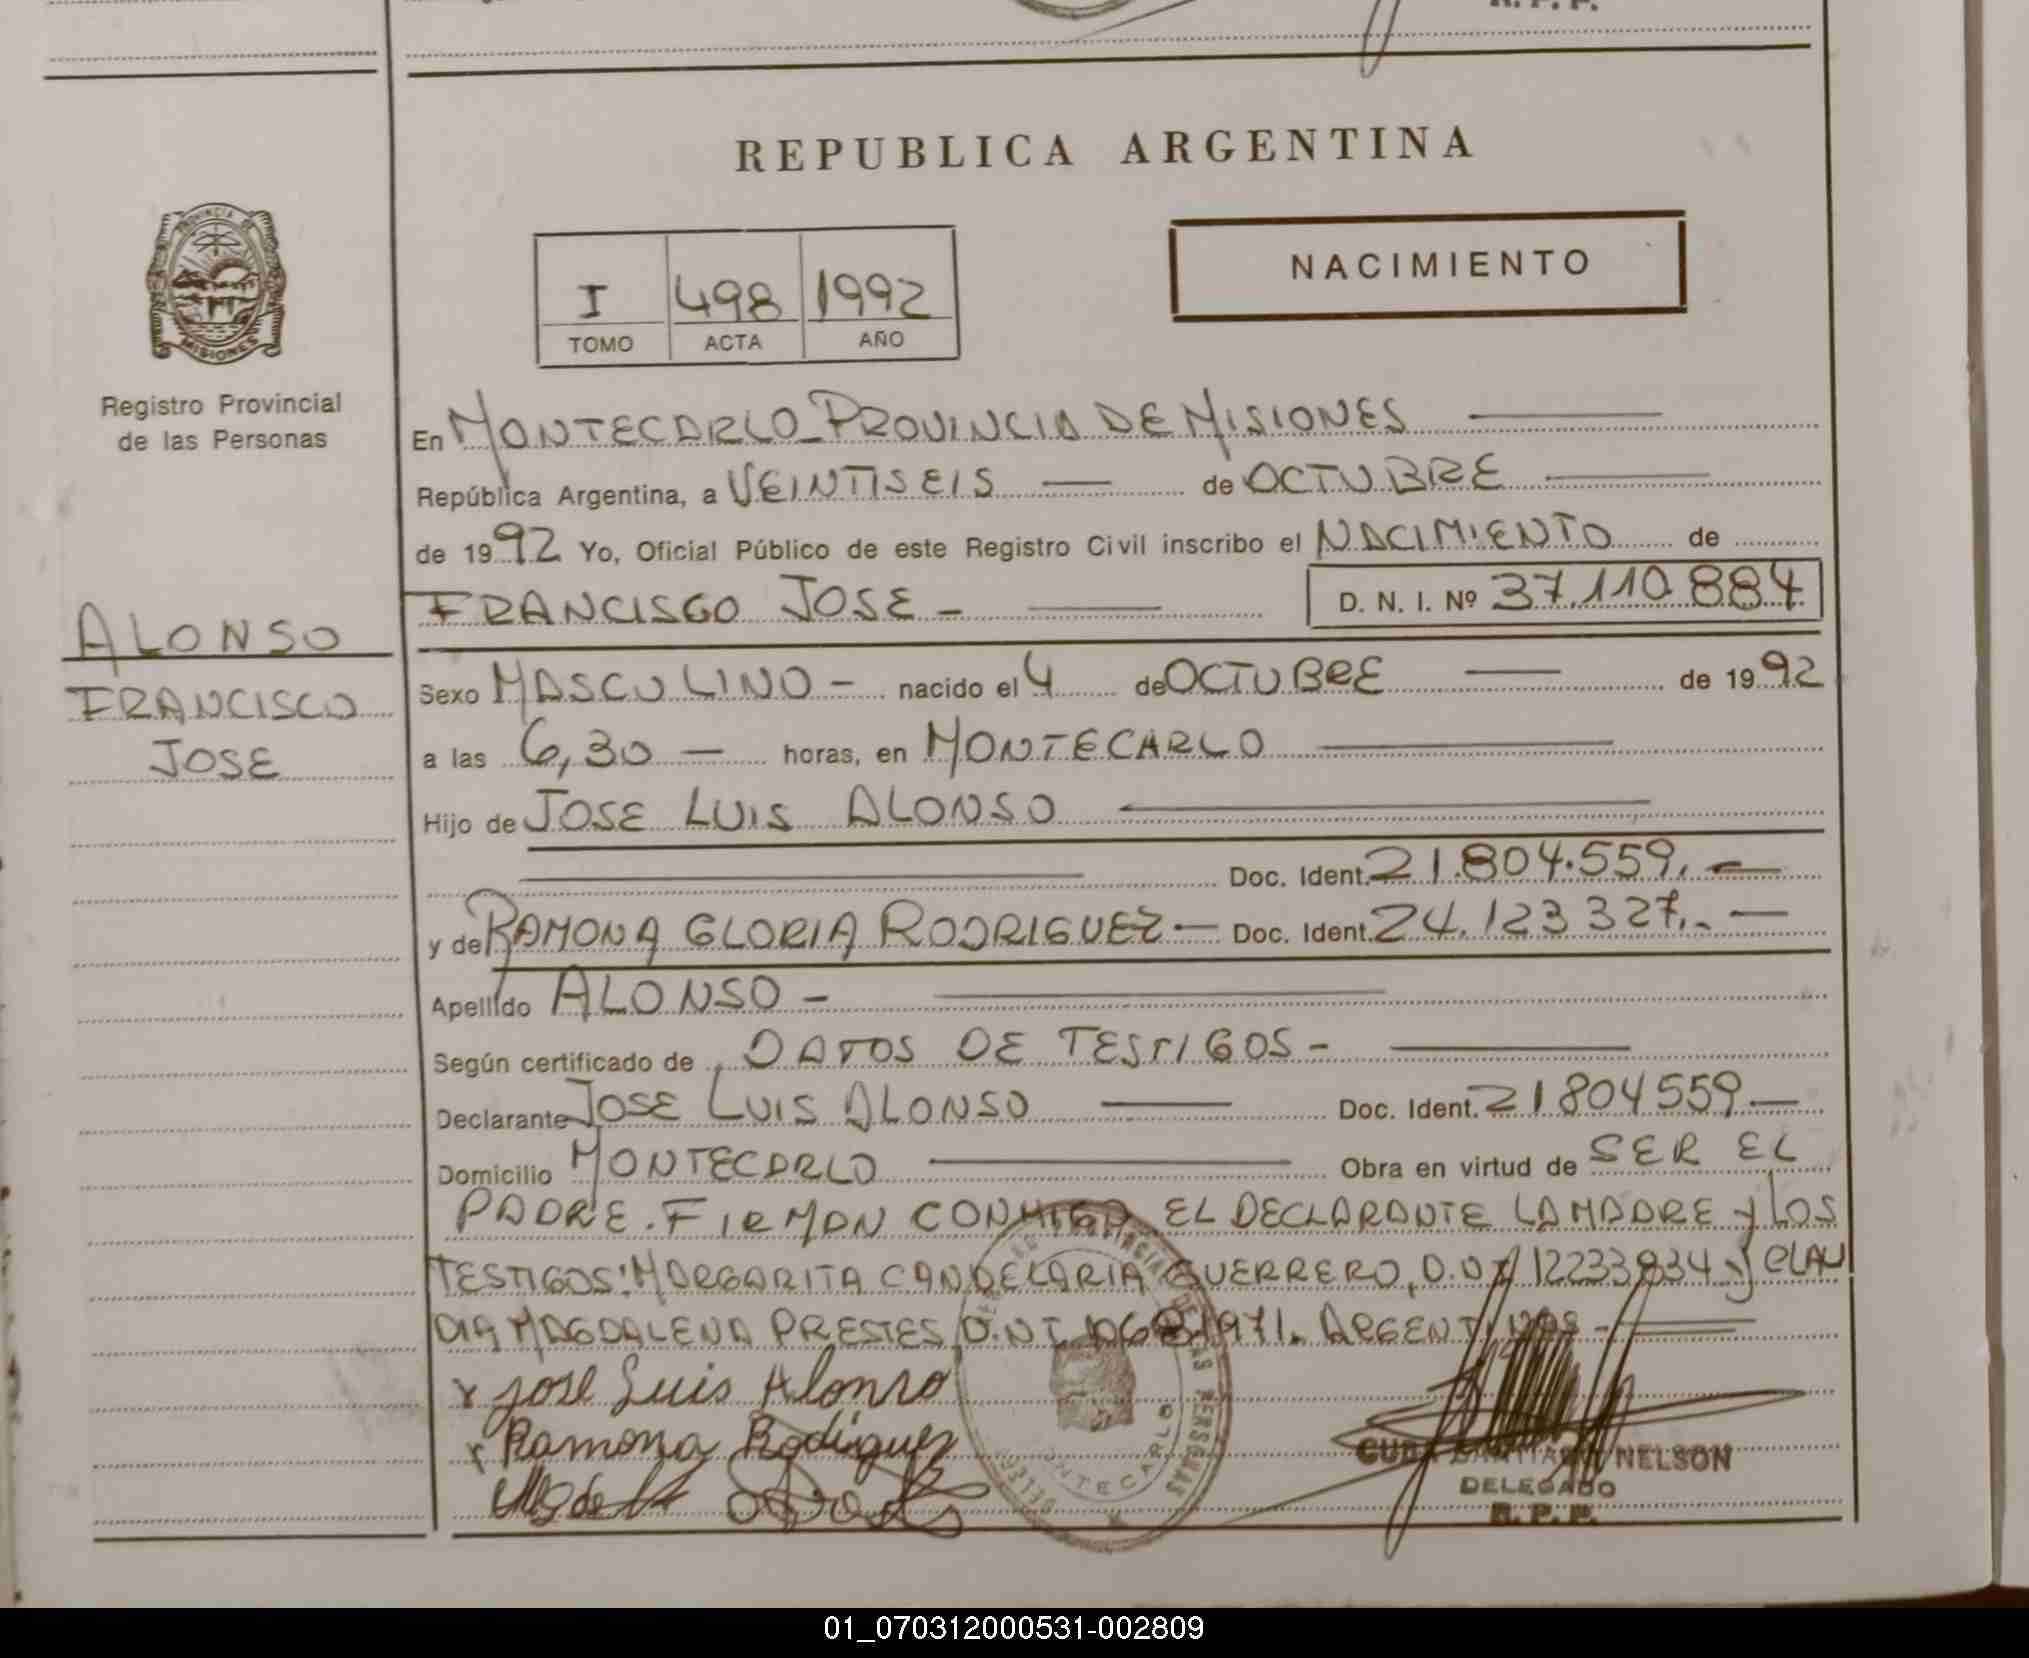 R. P. P.
REPUBLICA ARGENTINA
PROVINCIA DE
MISIONES
Registro Provincial
de las Personas
I 498 1992
TOMO ACTA AÑO
NACIMIENTO
En MONTECARLO - PROVINCIA DE MISIONES
República Argentina, a VEINTISEIS de OCTUBRE
de 1992 Yo, Oficial Público de este Registro Civil inscribo el NACIMIENTO de
FRANCISCO JOSE - D. N. I. Nº 37.110.884
ALONSO
FRANCISCO
JOSE
Sexo MASCULINO - nacido el 4 de OCTUBRE de 1992
a las 6,30 horas, en MONTECARLO
Hijo de JOSE LUIS ALONSO
Doc. Ident. 21.804.559.
y de RAMONA GLORIA RODRIGUEZ - Doc. Ident. 24.123.327.-
Apellido ALONSO -
Según certificado de DATOS DE TESTIGOS -
Declarante JOSE LUIS ALONSO Doc. Ident. 21804559
Domicilio MONTECARLO Obra en virtud de SER EL
PADRE. FIRMAN CONMIGO EL DECLARANTE LA MADRE Y LOS
TESTIGOS: MARGARITA CANDELARIA GUERRERO, D.N.I 12233834 y CLAU
DIA MAGDALENA PRESTES D.N.I. ARGENTINOS -
x jose Luis Alonso
x Ramona Rodriguez
MONTECARLO
NELSON
DELEGADO
R. P. P.
01_070312000531-002809